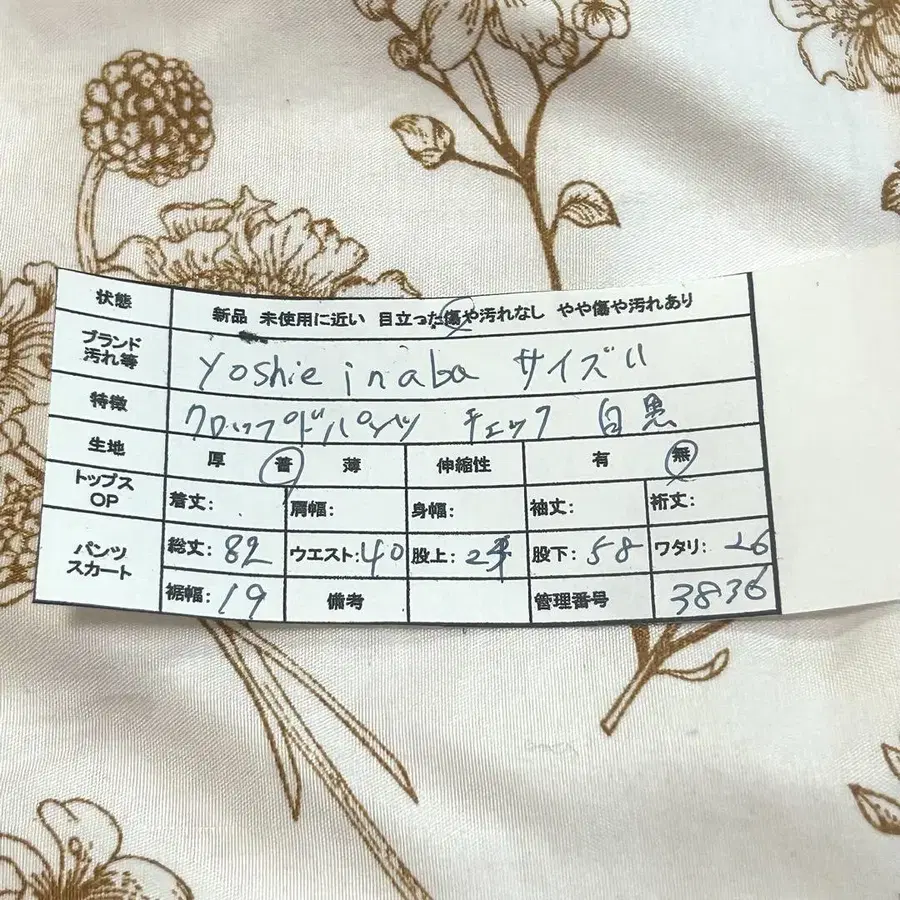 状態 新品 未使用に近い 目立った傷や汚れなし やや傷や汚れあり
ブランド 汚れ等 yoshie inaba サイズ11
特徴 クロップドパンツ チェック 白黒
生地 厚 普 薄 伸縮性 有 無
トップス OP 着丈: 肩幅: 身幅: 袖丈: 裄丈:
パンツ スカート 総丈: 82 ウエスト: 40 股上: 24 股下: 58 ワタリ: 26
裾幅: 19 備考 管理番号 3836